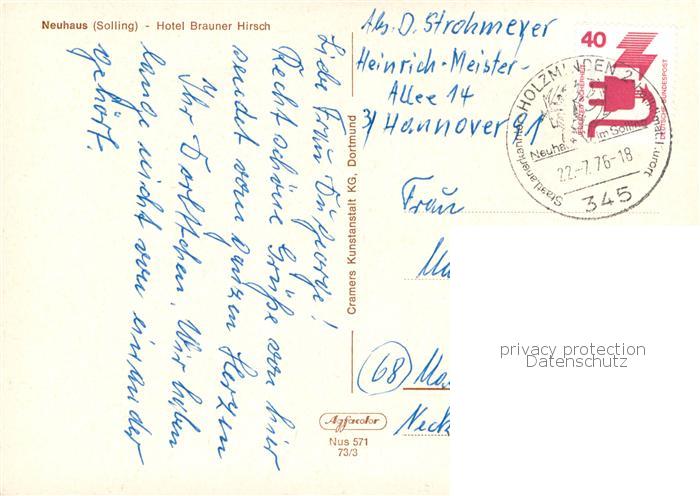 Neuhaus (Solling) - Hotel Brauner Hirsch
Liebe Frau
Recht schöne Grüße von hier
sendet vom ganzen Herzen
Ihr Dorttchen. Wir haben
lange nicht voneinander
gehört.
Cramers Kunstanstalt KG, Dortmund
Agfacolor
Nus 571
73/3
Abs. D. Strohmeyer
Heinrich-Meister-
Allee 14
3 Hannover 91
40
DEUTSCHE BUNDESPOST
HOLZMINDEN 2
Staatl. anerkannter
Neuhaus im Solling
22.-7.76-18
345
Frau
(68)
Neck
privacy protection
Datenschutz